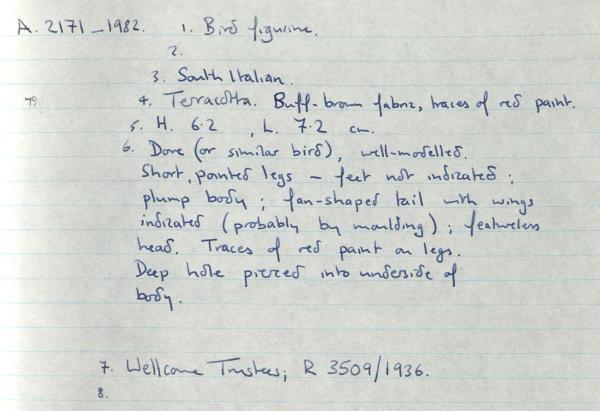 A. 2171-1982. 1. Bird figurine.
2.
3. South Italian.
79 4. Terracotta. Buff-brown fabric, traces of red paint.
5. H. 6.2 , L. 7.2 cm.
6. Dove (or similar bird), well-modelled.
Short, pointed legs - feet not indicated;
plump body; fan-shaped tail with wings
indicated (probably by moulding); featureless
head. Traces of red paint on legs.
Deep hole pierced into underside of
body.
7. Wellcome Trustees; R 3509/1936.
8.